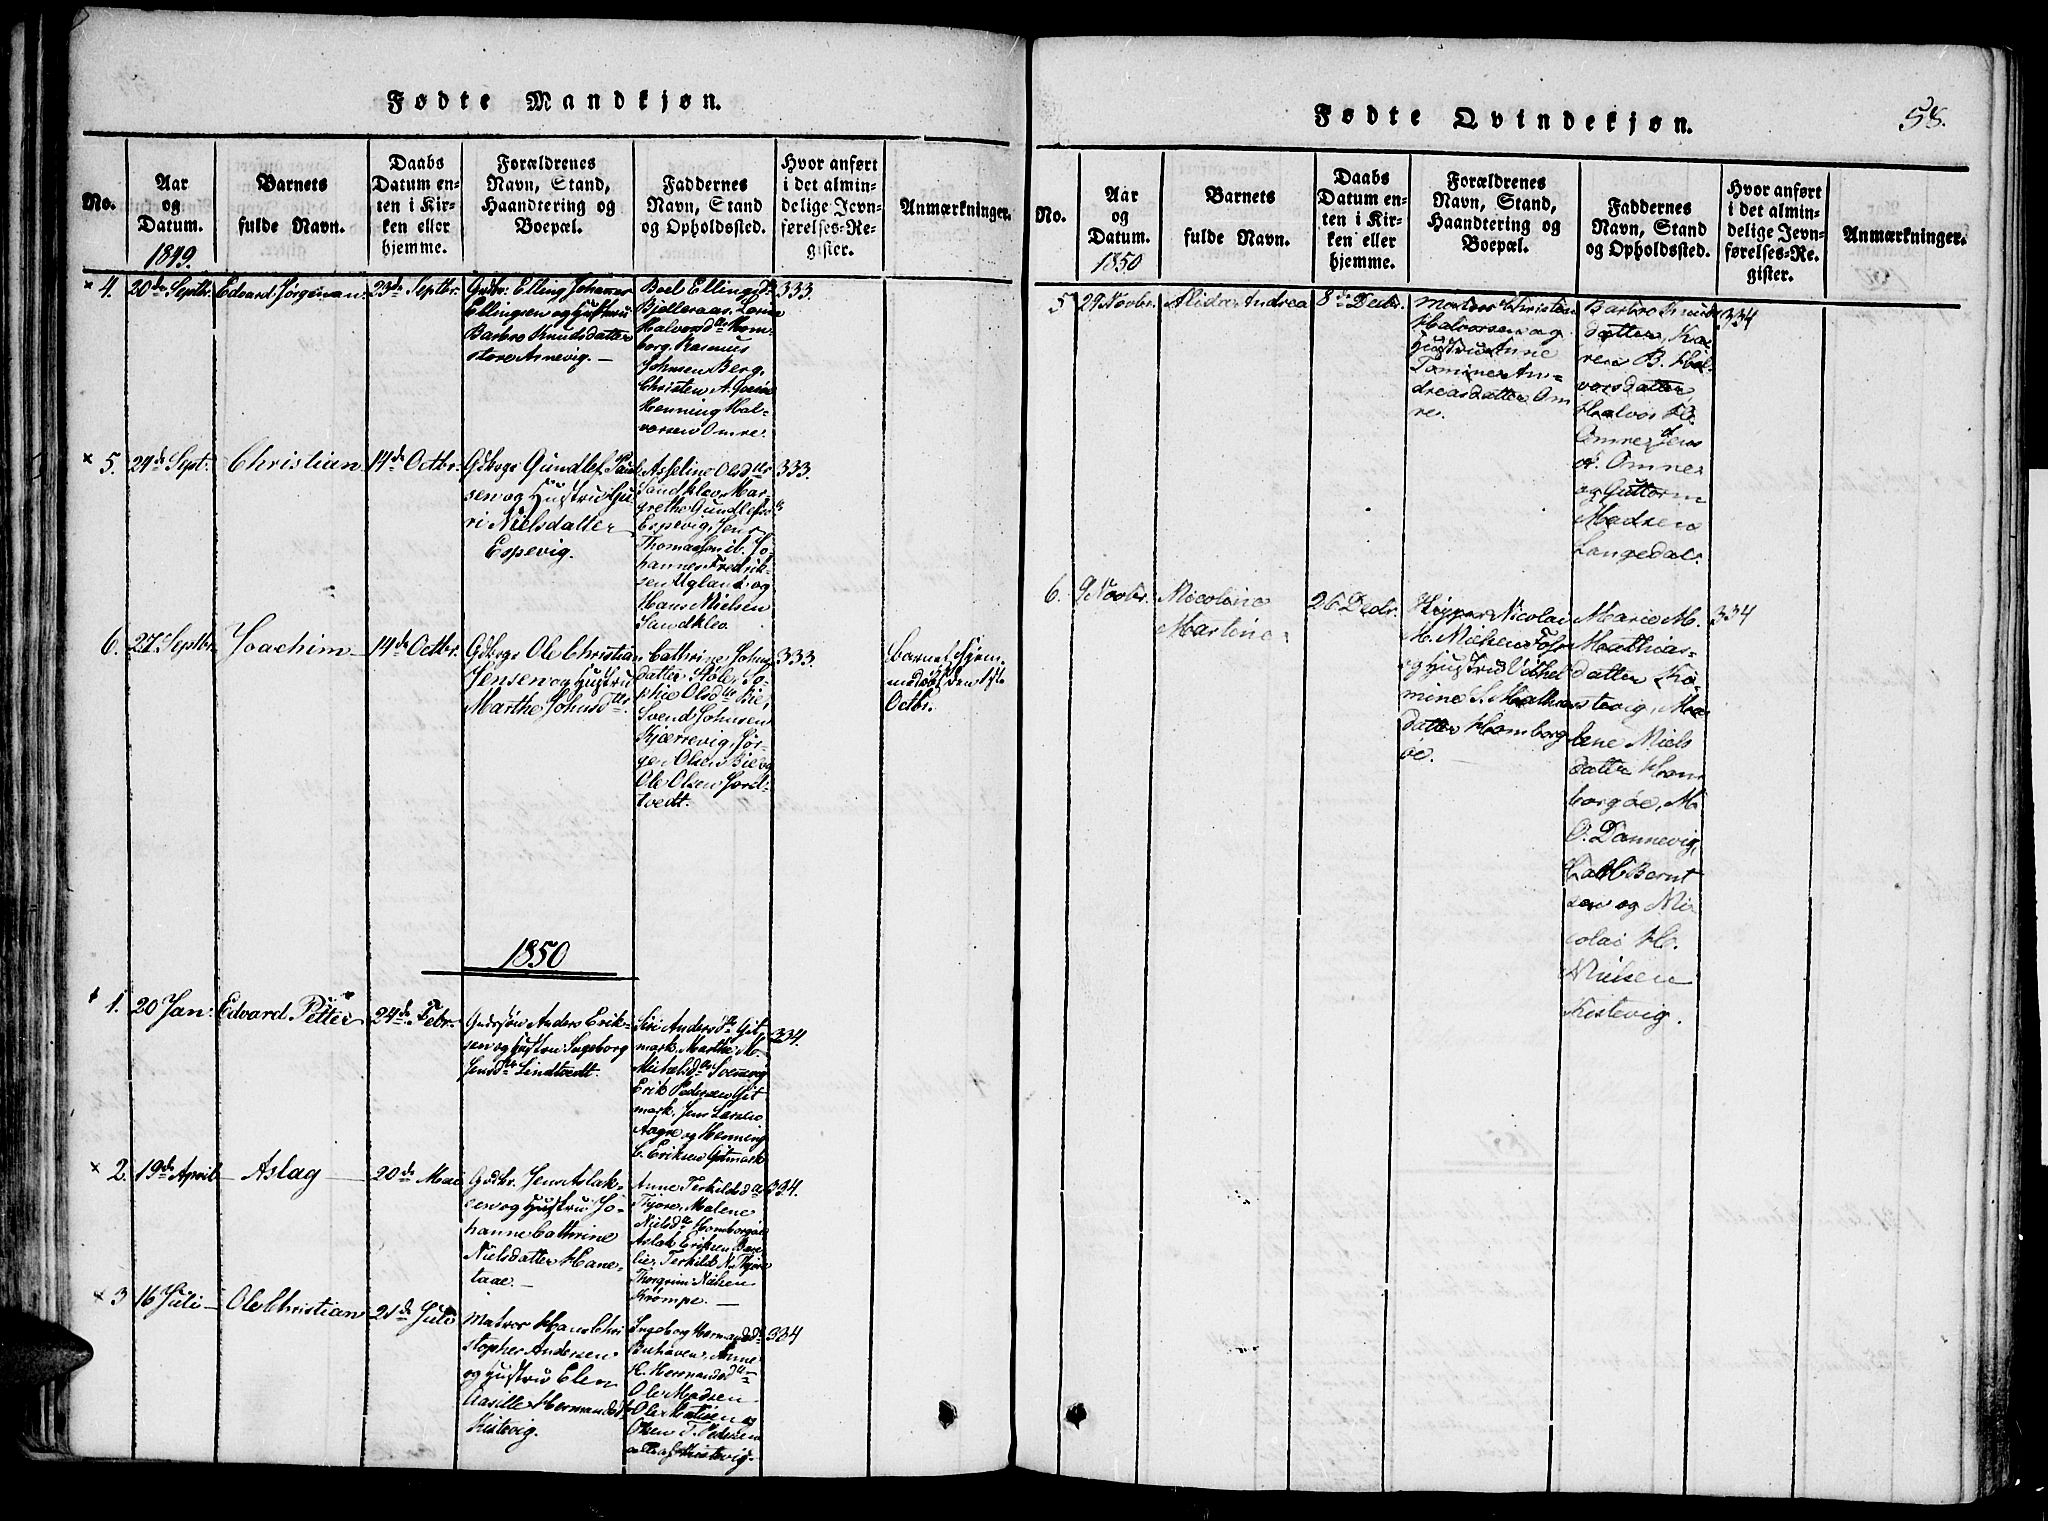 Fødte Mandkjøn.
No.
Aar
og
Datum.
1849.
Barnets
fulde Navn.
Daabs
Datum en-
ten i Kir-
ken eller
hjemme.
Forældrenes
Navn, Stand,
Haandtering og
Boepæl.
Faddernes
Navn, Stand
og Opholdssted.
Hvor anført
i det almin-
delige Jevn-
førelses-Re-
gister.
Anmærkninger.
× 4. 20de Septbr. Edvard Jørginan 23de Septbr.
Elling Johannes
Ellingsen og Hustru
Barbro Knudsdatter
store Arnevig. —
Boel Ellingsdr
Bjelleraas,
Halvorsdtr Hom-
borg, Rasmus
Johnsen Berg,
Christen A.
Henning Hal-
vorsen Omre.
333.
× 5. 24de Sept. Christian 14de Octbr.
Gdbrge Gundlef
sen og Hustru Gu-
ri Nielsdatter
Espevig.
Asseline Olsdtr
Sandklev, Mar-
grethe Gundlefsdtr
Espevig, Jens
Thomassen ib. Jo-
hannes Fredrik-
sen Ugland og
Hans Nielsen
Sandklev.
333.
6. 27 Septbr. Joachim 14de Octbr.
Gdbrge Ole Christian
Jensen og Hustru
Marthe Johnsdtr.
Cathrine Johns-
datter Stole, So-
phie Olsdtr Bie,
Svend Johnsen
Kjærrevig, Jør-
gen Olsen Bie og
Ole Olsen
tvedt.
333.
Barnet hjem-
medøbt den 1ste
Octbr.
1850
1. 20 Jan. Edvard Petter 24de Febr.
Anders Erik-
sen og Hustru Ingeborg
Jensdtr Lindtvedt.
Siri Andersdtr Git-
mark, Marthe M.
Michelsdtr
Erik Pedersen Git-
mark, Jens Larsen
Aagre og Henning
C. Eriksen Gitmark
334.
× 2. 19de April Aslag 20de Mai
Gdbr. Jens Aslak-
sen og Hustru Jo-
hanne Cathrine
Nielsdatter Hane-
taae. —
Anne Terkildsdtr
Thjore, Malene
Nielsdtr Homborgøe
Aslak Eriksen
Terkild N. Thjore
Thorgrim Nielsen
Krømpe. —
334.
× 3 16 Juli Ole Christian 21de Juli
Matros Hans Chri-
stopher Andersen
og Hustru Elen
Aasille Hermandsdr
Kistevig.
Ingeborg Hermandsdtr
Anne
K. Hermandsdtr
Ole Madsen
Ole og
Olsen T. Pedersen
alle af Kistevig.
334
Fødte Qvindekjøn.
58.
No.
Aar
og
Datum.
1850
Barnets
fulde Navn.
Daabs
Datum en-
ten i Kir-
ken eller
hjemme.
Forældrenes
Navn, Stand,
Haandtering og
Boepæl.
Faddernes
Navn, Stand
og Opholdssted.
Hvor anført
i det almin-
delige Jevn-
førelses-Re-
gister.
Anmærkninger.
5 29 Novbr. Alida Andrea 8de Decbr.
Matros Christen
Halvorsen og
Hustru Anne
Tomine An-
dreasdatter Om-
re.
Barbro Knuds-
datter, Ka-
ren B. Hal-
vorsdatter,
Halvor H.
Omre, Jens
A. Omre
og Guttorm
Madsen
Langedal.
334
6. 9 Novbr. Nicoline
Martine
26 Decbr.
Skipper Nicolai
M. Nielsen
og Hustru Vilhel-
mine S. Mathias-
datter Homborg-
øe.
Marie M.
Mathias-
datter Ki-
stevig, Ma-
lene Niels-
datter Hom-
borgøe, M.
O. Dannevig,
Bernt-
sen og Ni-
colai H.
Nielsen
Kistevig.
334